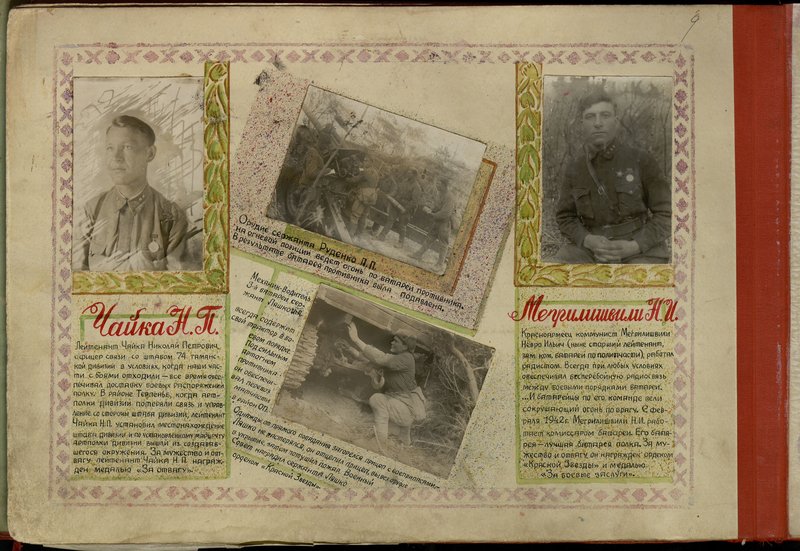 9
Чайка Н.П.
Лейтенант Чайка Николай Петрович,
офицер связи со штабом 74 таман-
ской дивизии в условиях, когда наши час-
ти с боями отходили – все время обес-
печивал доставку боевых распоряжений
полку. В районе Теплень, когда арт-
полки дивизии потеряли связь и управ-
ление со стороны штаба дивизии, лейтенант
Чайка Н.П. установил местонахождение
штаба дивизии и по установленному маршруту
артполки дивизии вышли из создавав-
шегося окружения. За мужество и от-
вагу лейтенант Чайка Н.П. награж-
ден медалью «За отвагу».
Орудие сержанта Руденко П.П.
на огневой позиции ведет огонь по батарее противника.
В результате батарея противника была подавлена.
Механик-водитель
3-й батареи сер-
жант Ляшко И.
всегда содержал
свой трактор в бо-
евом порядке.
Под сильным
артогнем
противника
он обеспечи-
вал перевоз
матчасти
в район ОП.
Однажды от прямого попадания загорелся прицеп с боеприпасами –
Ляшко не растерялся, он отцепил прицеп, вывел трактор
в укрытие, затем потушил пожар. Военный
Совет наградил сержанта Ляшко
орденом «Красной Звезды».
Мегрилишвили Н.И.
Красноармеец коммунист Мегрилишвили
Невро Ильич (ныне старший лейтенант,
зам. ком. батареи по политчасти), работал
радистом. Всегда при любых условиях
обеспечивал бесперебойную радиосвязь
между боевыми порядками батареи.
...И батарейцы по его команде вели
сокрушающий огонь по врагу. С фев-
раля 1942 г. Мегрилишвили Н.И. рабо-
тает комиссаром батареи. Его бата-
рея – лучшая батарея полка. За му-
жество и отвагу он награжден орденом
«Красной Звезды» и медалью
«За боевые заслуги».